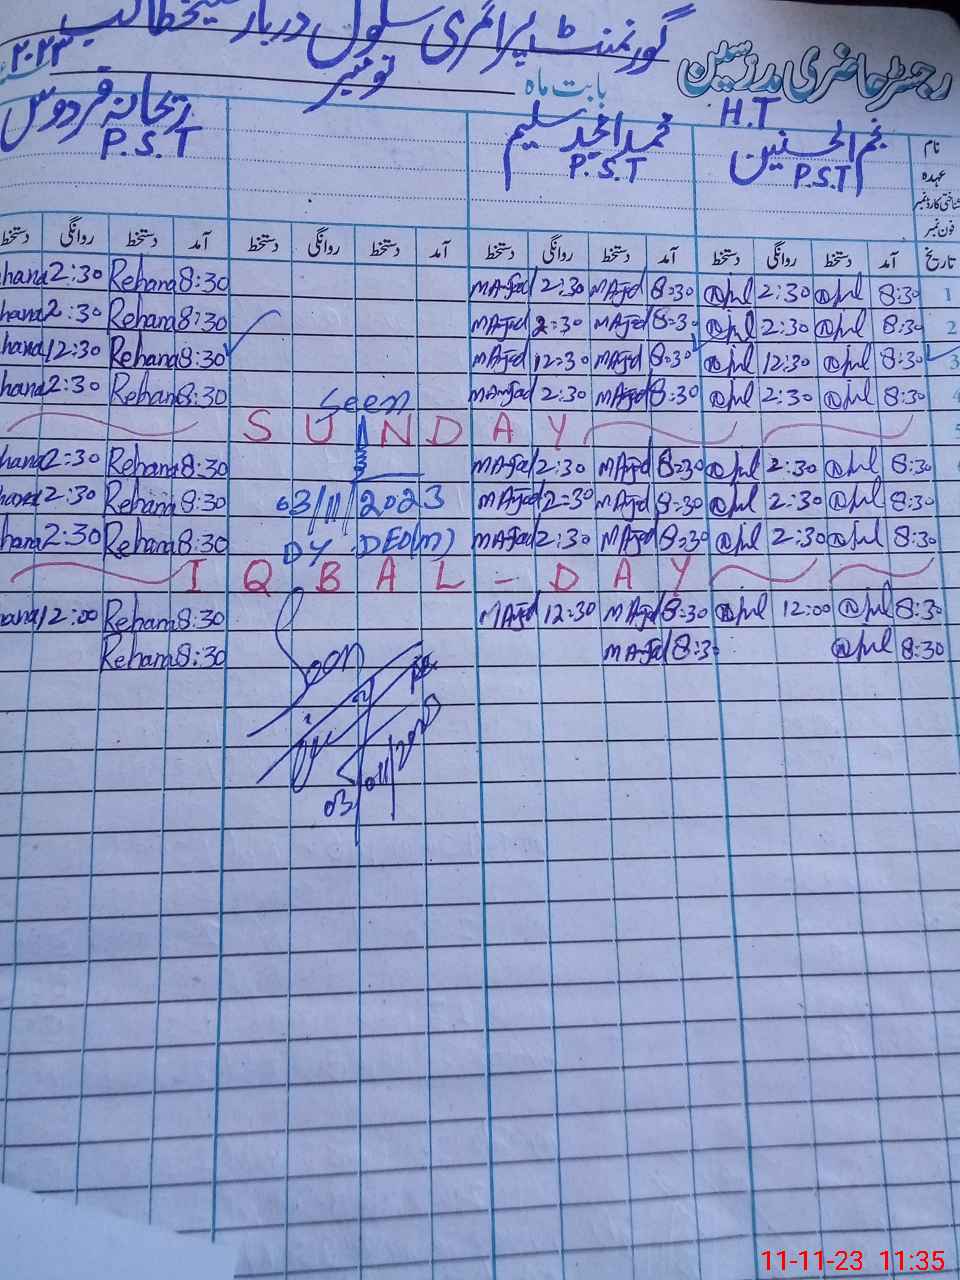 گورنمنٹ پرائمری سکول دربار شیخ طالب
رجسٹر حاضری مدرسین بابت ماہ نومبر ۲۰۲۳
H.T
نام نجم الحسنین محمد امجد سلیم ریحانہ فردوس
عہدہ P.S.T P.S.T P.S.T
شناختی کارڈ نمبر
فون نمبر
تاریخ آمد دستخط روانگی دستخط آمد دستخط روانگی دستخط آمد دستخط روانگی دستخط آمد دستخط روانگی دستخط
hana 2:30 Rehana 8:30 MAjd 2:30 MAjd 8:30 2:30 8:30 1
hana 2:30 Rehana 8:30 MAjd 2:30 MAjd 8:30 2:30 8:30 2
hana 12:30 Rehana 8:30 MAjd 12:30 MAjd 8:30 12:30 8:30 3
hana 2:30 Rehana 8:30 Seen MAjd 2:30 MAjd 8:30 2:30 8:30 4
SUNDAY
hana 2:30 Rehana 8:30 MAjd 2:30 MAjd 8:30 2:30 8:30
hana 2:30 Rehana 8:30 03/11/2023 MAjd 2:30 MAjd 8:30 2:30 8:30
hana 2:30 Rehana 8:30 DY. DEO(M) MAjd 2:30 MAjd 8:30 2:30 8:30
IQBAL-DAY
hana 12:00 Rehana 8:30 MAjd 12:30 MAjd 8:30 12:00 8:30
Rehana 8:30 MAjd 8:30 8:30
Seen
03/011/2023
11-11-23 11:35